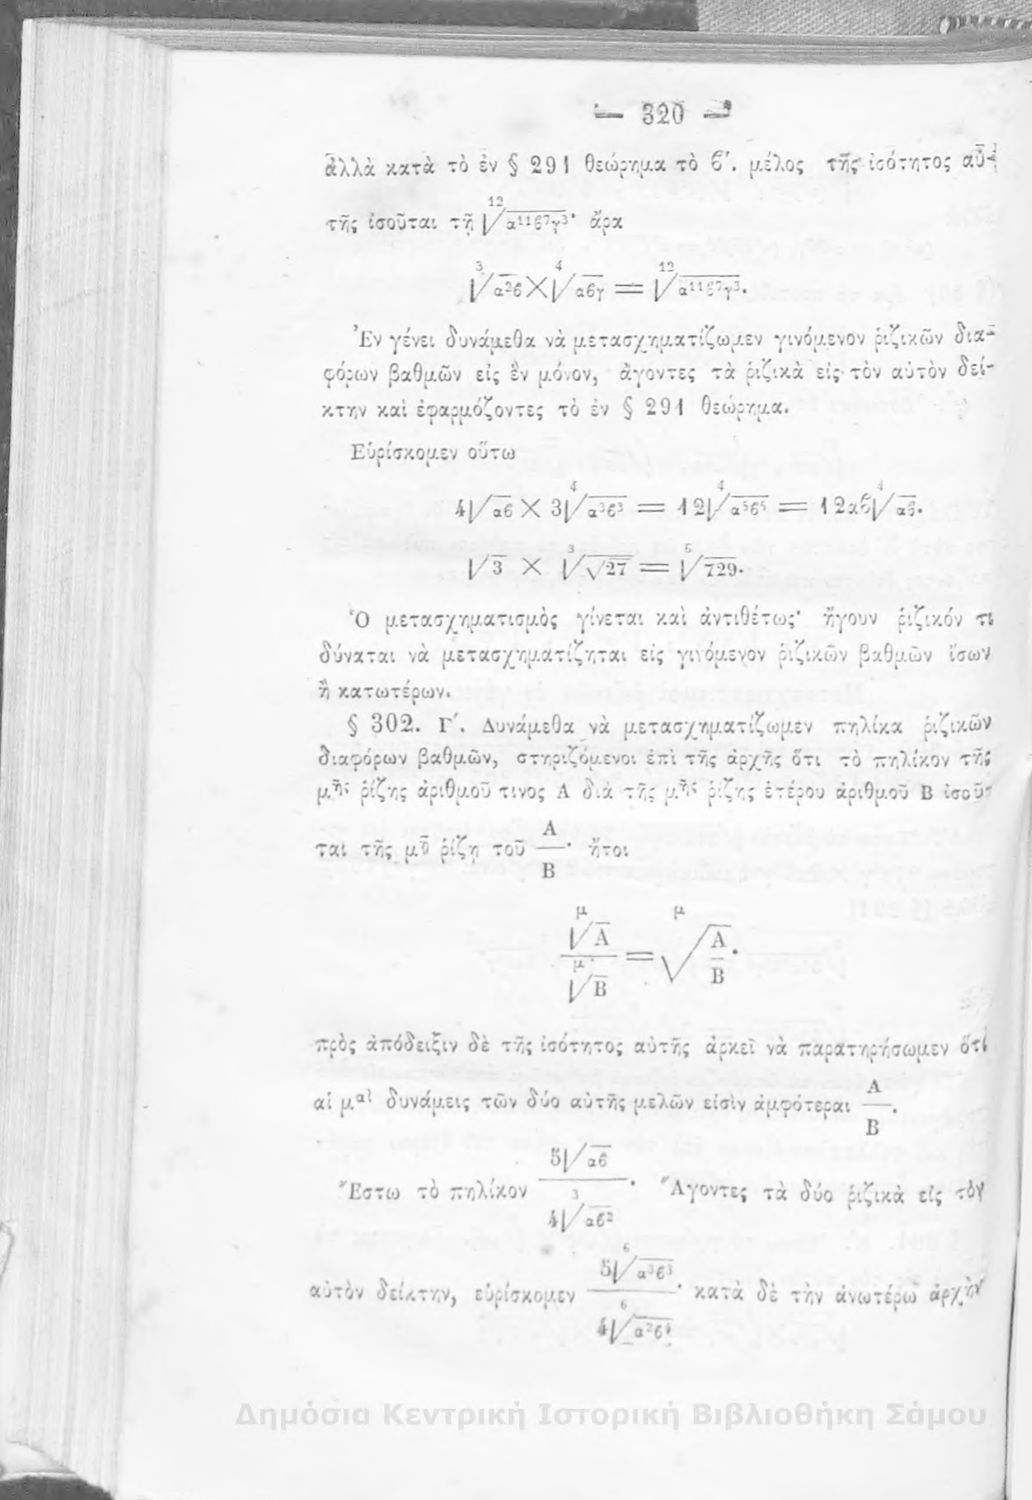 — 320 —
ἀλλὰ κατὰ τὸ ἐν § 291 θεώρημα τὸ β'. μέλος τῆς ἰσότητος αὐ-
τῆς ἰσοῦται τῇ \sqrt[12]{α¹¹β⁷γ³}· ἄρα
\sqrt[3]{α²β} × \sqrt[4]{αβγ} = \sqrt[12]{α¹¹β⁷γ³}.
Ἐν γένει δυνάμεθα νὰ μετασχηματίζωμεν γινόμενον ῥιζικῶν δια-
φόρων βαθμῶν εἰς ἓν μόνον, ἄγοντες τὰ ῥιζικὰ εἰς τὸν αὐτὸν δεί-
κτην καὶ ἐφαρμόζοντες τὸ ἐν § 291 θεώρημα.
Εὑρίσκομεν οὕτω
4√αβ × 3\sqrt[4]{α³β³} = 12\sqrt[4]{α⁵β⁵} = 12αβ\sqrt[4]{αβ}.
√3 × \sqrt[3]{√27} = \sqrt[6]{729}.
Ὁ μετασχηματισμὸς γίνεται καὶ ἀντιθέτως· ἤγουν ῥιζικόν τι
δύναται νὰ μετασχηματίζηται εἰς γινόμενον ῥιζικῶν βαθμῶν ἴσων
ἢ κατωτέρων.
§ 302. Γ'. Δυνάμεθα νὰ μετασχηματίζωμεν πηλίκα ῥιζικῶν
διαφόρων βαθμῶν, στηριζόμενοι ἐπὶ τῆς ἀρχῆς ὅτι τὸ πηλίκον τῆς
μῆς ῥίζης ἀριθμοῦ τινος Α διὰ τῆς μῆς ῥίζης ἑτέρου ἀριθμοῦ Β ἰσοῦ-
ται τῆς μῦ ῥίζῃ τοῦ Α/Β· ἤτοι
\sqrt[μ]{Α} / \sqrt[μ]{Β} = \sqrt[μ]{Α/Β}.
πρὸς ἀπόδειξιν δὲ τῆς ἰσότητος αὐτῆς ἀρκεῖ νὰ παρατηρήσωμεν ὅτι
αἱ μαὶ δυνάμεις τῶν δύο αὐτῆς μελῶν εἰσὶν ἀμφότεραι Α/Β.
Ἔστω τὸ πηλίκον 5√αβ / 4\sqrt[3]{αβ²}· Ἄγοντες τὰ δύο ῥιζικὰ εἰς τὸν
αὐτὸν δείκτην, εὑρίσκομεν 5\sqrt[6]{α³β³} / 4\sqrt[6]{α²β⁴}· κατὰ δὲ τὴν ἀνωτέρω ἀρχὴν
Δημόσια Κεντρική Ιστορική Βιβλιοθήκη Σάμου